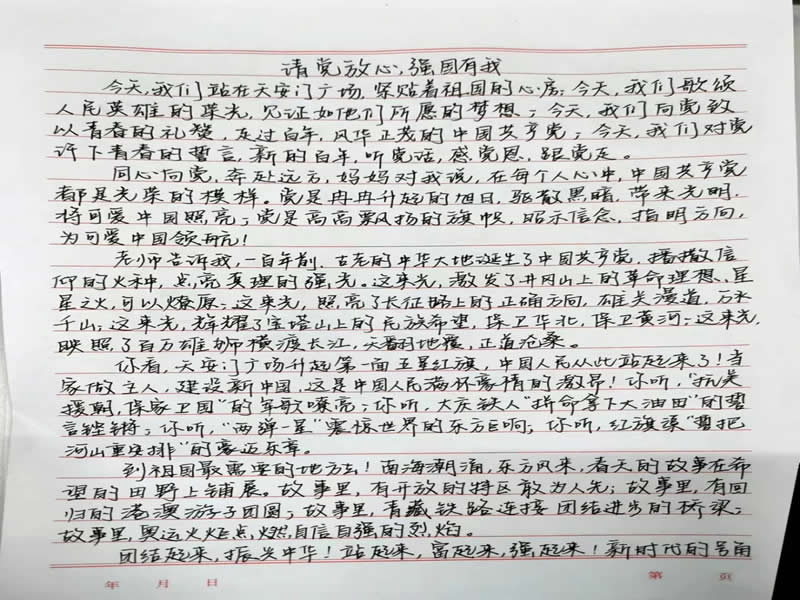 请党放心,强国有我
今天,我们站在天安门广场,紧贴着祖国的心房;今天,我们歌颂
人民英雄的荣光,见证如他们所愿的梦想;今天,我们向党致
以青春的礼赞,走过百年,风华正茂的中国共产党;今天,我们对党
许下青春的誓言,新的百年,听党话,感党恩,跟党走。
同心向党,奔赴远方,妈妈对我说,在每个人心中,中国共产党
都是光荣的模样。党是冉冉升起的旭日,驱散黑暗,带来光明,
将可爱中国照亮;党是高高飘扬的旗帜,昭示信念,指明方向,
为可爱中国领航!
老师告诉我,一百年前,古老的中华大地诞生了中国共产党,播撒信
仰的火种,点亮真理的强光。这束光,激发了井冈山上的革命理想、星
星之火,可以燎原;这束光,照亮了长征路上的正确方向,雄关漫道,万水
千山;这束光,辉耀了宝塔山上的民族希望,保卫华北,保卫黄河;这束光,
映照了百万雄师横渡长江,天翻地覆,正道沧桑。
你看,天安门广场升起第一面五星红旗,中国人民从此站起来了!当
家做主人,建设新中国,这是中国人民满怀豪情的激昂!你听,"抗美
援朝,保家卫国"的军歌嘹亮;你听,大庆铁人"拼命拿下大油田"的誓
言铿锵;你听,"两弹一星"震惊世界的东方巨响;你听,红旗渠"誓把
河山重安排"的豪迈乐章。
到祖国最需要的地方去!南海潮涌,东方风来,春天的故事在希
望的田野上铺展。故事里,有开放的特区敢为人先;故事里,有回
归的港澳游子团圆;故事里,青藏铁路连接团结进步的桥梁;
故事里,奥运火炬点燃自信自强的烈焰。
团结起来,振兴中华!站起来,富起来,强起来!新时代的号角
年 月 日
第 页